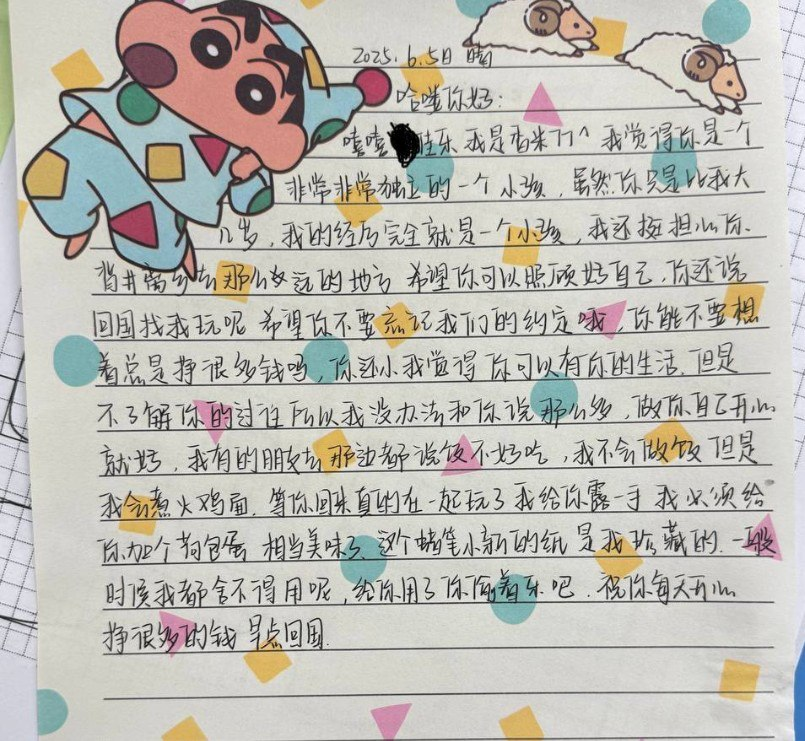 2025.6.5日 晴
哈喽你好：
嘻嘻 佳乐 我是香米77^ 我觉得你是一个
非常非常独立的一个小孩，虽然你只是比我大
几岁，我的经历完全就是一个小孩，我还挺担心你.
背井离乡去那么远的地方 希望你可以照顾好自己.你还说
回国找我玩呢 希望你不要忘记我们的约定哦，你能不要想
着总是挣很多钱吗，你还小我觉得 你可以有你的生活.但是
不了解你的过往 所以我没办法和你说那么多，做你自己开心
就好，我有的朋友去那边都说饭不好吃，我不会做饭 但是
我会煮火鸡面.等你回来真的在一起玩了我给你露一手 我必须给
你加个荷包蛋 相当美味了.这个蜡笔小新的纸是我珍藏的.一般
时候我都舍不得用呢，给你用了你偷着乐吧.祝你每天开心
挣很多的钱 早点回国.